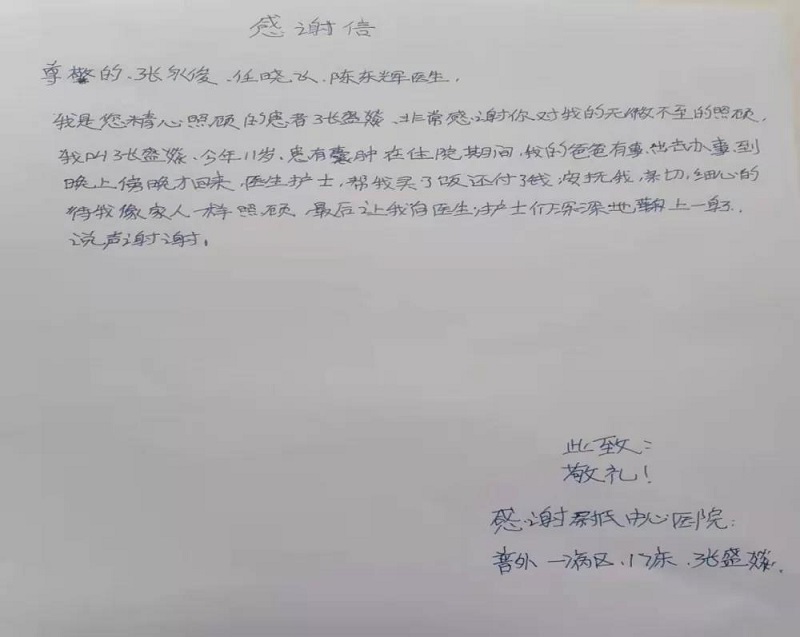 感谢信
尊敬的、张永俊、任晓飞、陈东辉医生,
我是您精心照顾的患者张盛媛、非常感谢你对我的无微不至的照顾,
我叫张盛媛、今年11岁、患有囊肿在住院其间,我的爸爸有事出去办事,到
晚上傍晚才回来,医生护士,帮我买了饭还付了钱,安抚我,亲切,细心的
待我像家人一样照顾,最后让我向医生,护士们深深地鞠上一躬.
说声谢谢,
此致:
敬礼!
感谢 中心医院:
普外一病区、17床、张盛媛.